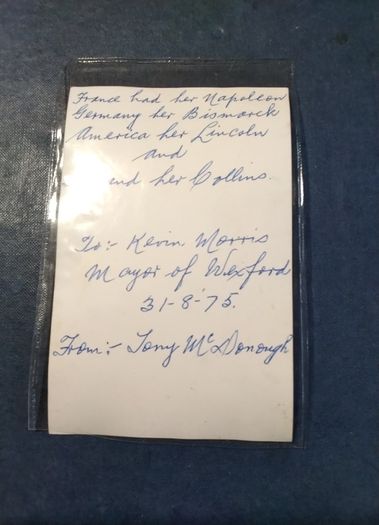 France had her Napoleon
Germany her Bismarck
America her Lincoln
and
her Collins.
To:- Kevin Morris
Mayor of Wexford
31-8-'75.
From:- Tony McDonough